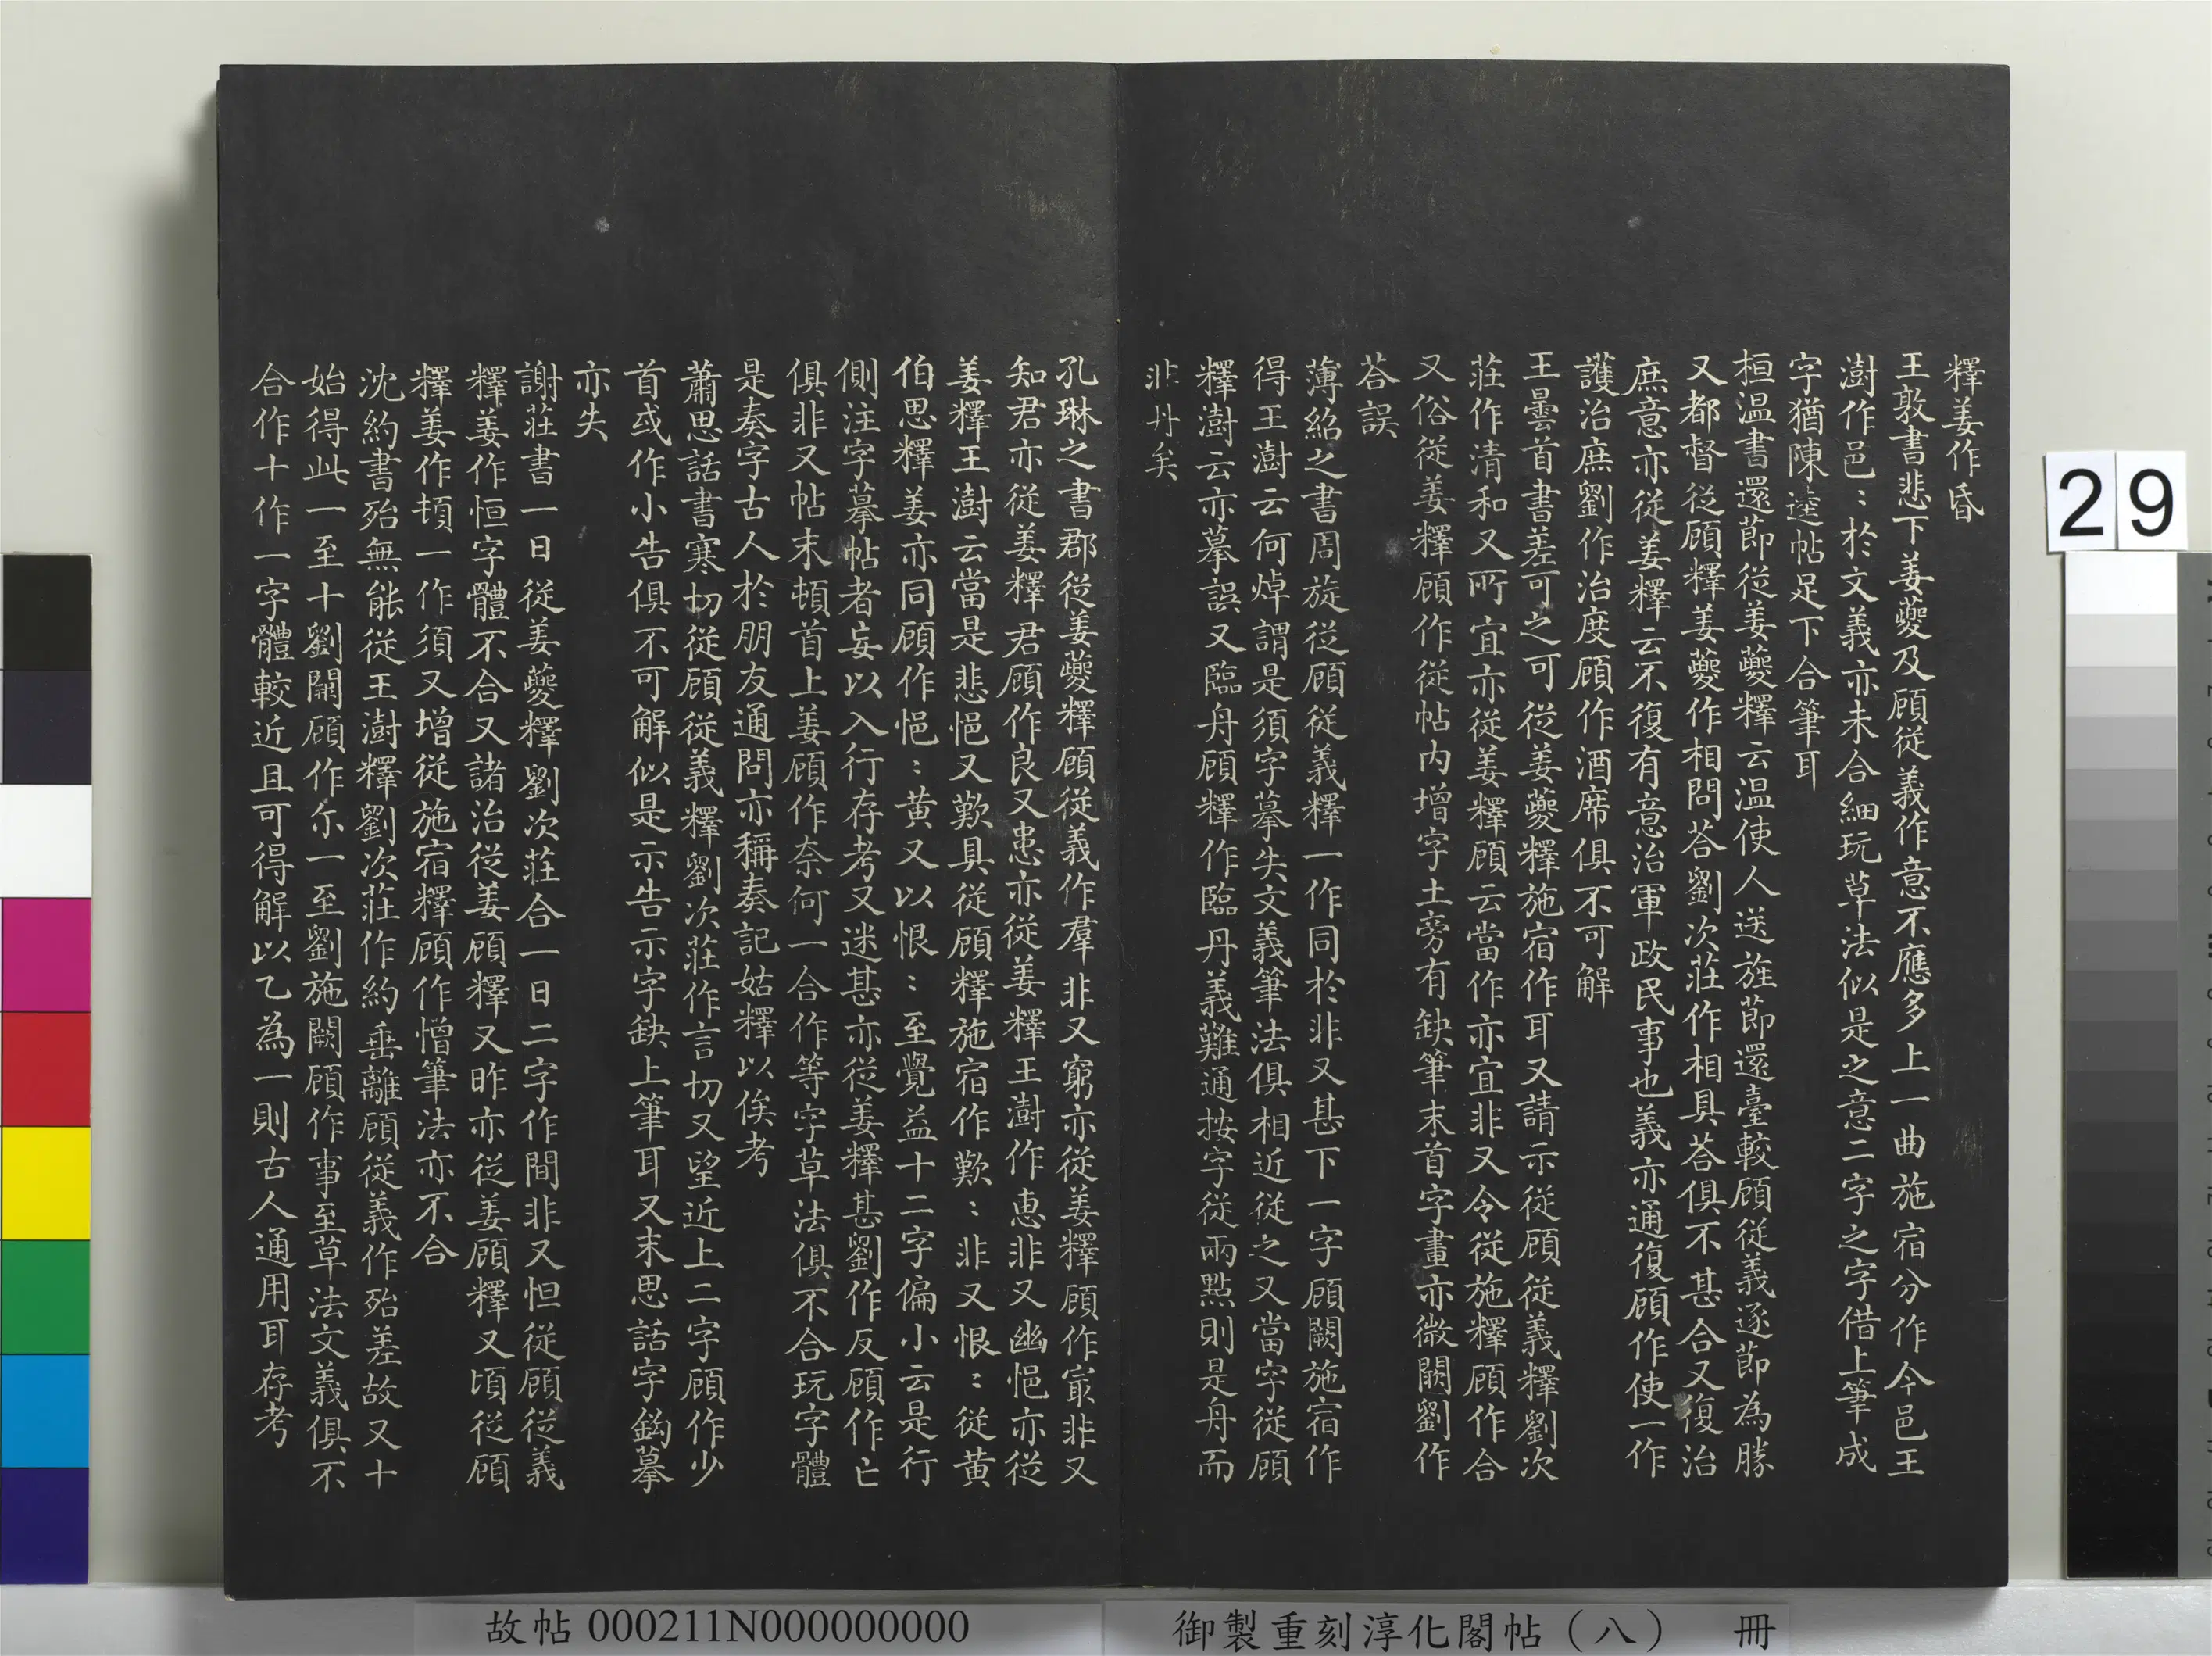 釋姜作昏
王敦書悲下姜夔及顧從義作意不應多上一曲施宿分作今邑王
澍作邑〻於文義亦未合細玩草法似是之意二字之字借上筆成
字猶陳逵帖足下合筆耳
桓溫書還節從姜夔釋云溫使人送旌節還臺較顧從義逐節為勝
又都督從顧釋姜夔作相問荅劉次莊作相具荅俱不甚合又復治
庶意亦從姜釋云不復有意治軍政民事也義亦通復顧作使一作
護治庶劉作治度顧作酒席俱不可解
王曇首書差可之可從姜夔釋施宿作耳又請示從顧從義釋劉次
莊作清和又所宜亦從姜釋顧云當作亦宜非又令從施釋顧作合
又俗從姜釋顧作從帖内增字土旁有缺筆末首字畫亦微闕劉作
荅誤
薄紹之書周旋從顧從義釋一作同於非又甚下一字顧闕施宿作
得王澍云何焯謂是須字摹失文義筆法俱相近從之又當字從顧
釋澍云亦摹誤又臨舟顧釋作臨丹義難通按字從兩點則是舟而
非丹矣
孔琳之書郡從姜夔釋顧從義作羣非又窮亦從姜釋顧作㝡非又
知君亦從姜釋君顧作良又患亦從姜釋王澍作惠非又幽悒亦從
姜釋王澍云當是悲悒又歎具從顧釋施宿作歎〻非又恨〻從黃
伯思釋姜亦同顧作悒〻黃又以恨〻至覺益十二字偏小云是行
側注字摹帖者妄以入行存考又迷甚亦從姜釋甚劉作反顧作亡
俱非又帖末頓首上姜顧作奈何一合作等字草法俱不合玩字體
是奏字古人於朋友通問亦稱奏記姑釋以俟考
蕭思話書寒切從顧從義釋劉次莊作言切又望近上二字顧作少
首或作小告俱不可解似是示告示字缺上筆耳又末思話字鉤摹
亦失
謝莊書一日從姜夔釋劉次莊合一日二字作間非又怛從顧從義
釋姜作恒字體不合又諸治從姜顧釋又昨亦從姜顧釋又頃從顧
釋姜作頓一作須又增從施宿釋顧作憎筆法亦不合
沈約書殆無能從王澍釋劉次莊作約垂離顧從義作殆差故又十
始得此一至十劉闕顧作尒一至劉施闕顧作事至草法文義俱不
合作十作一字體較近且可得解以乙為一則古人通用耳存考
29
故帖 000211N000000000
御製重刻淳化閣帖（八） 冊